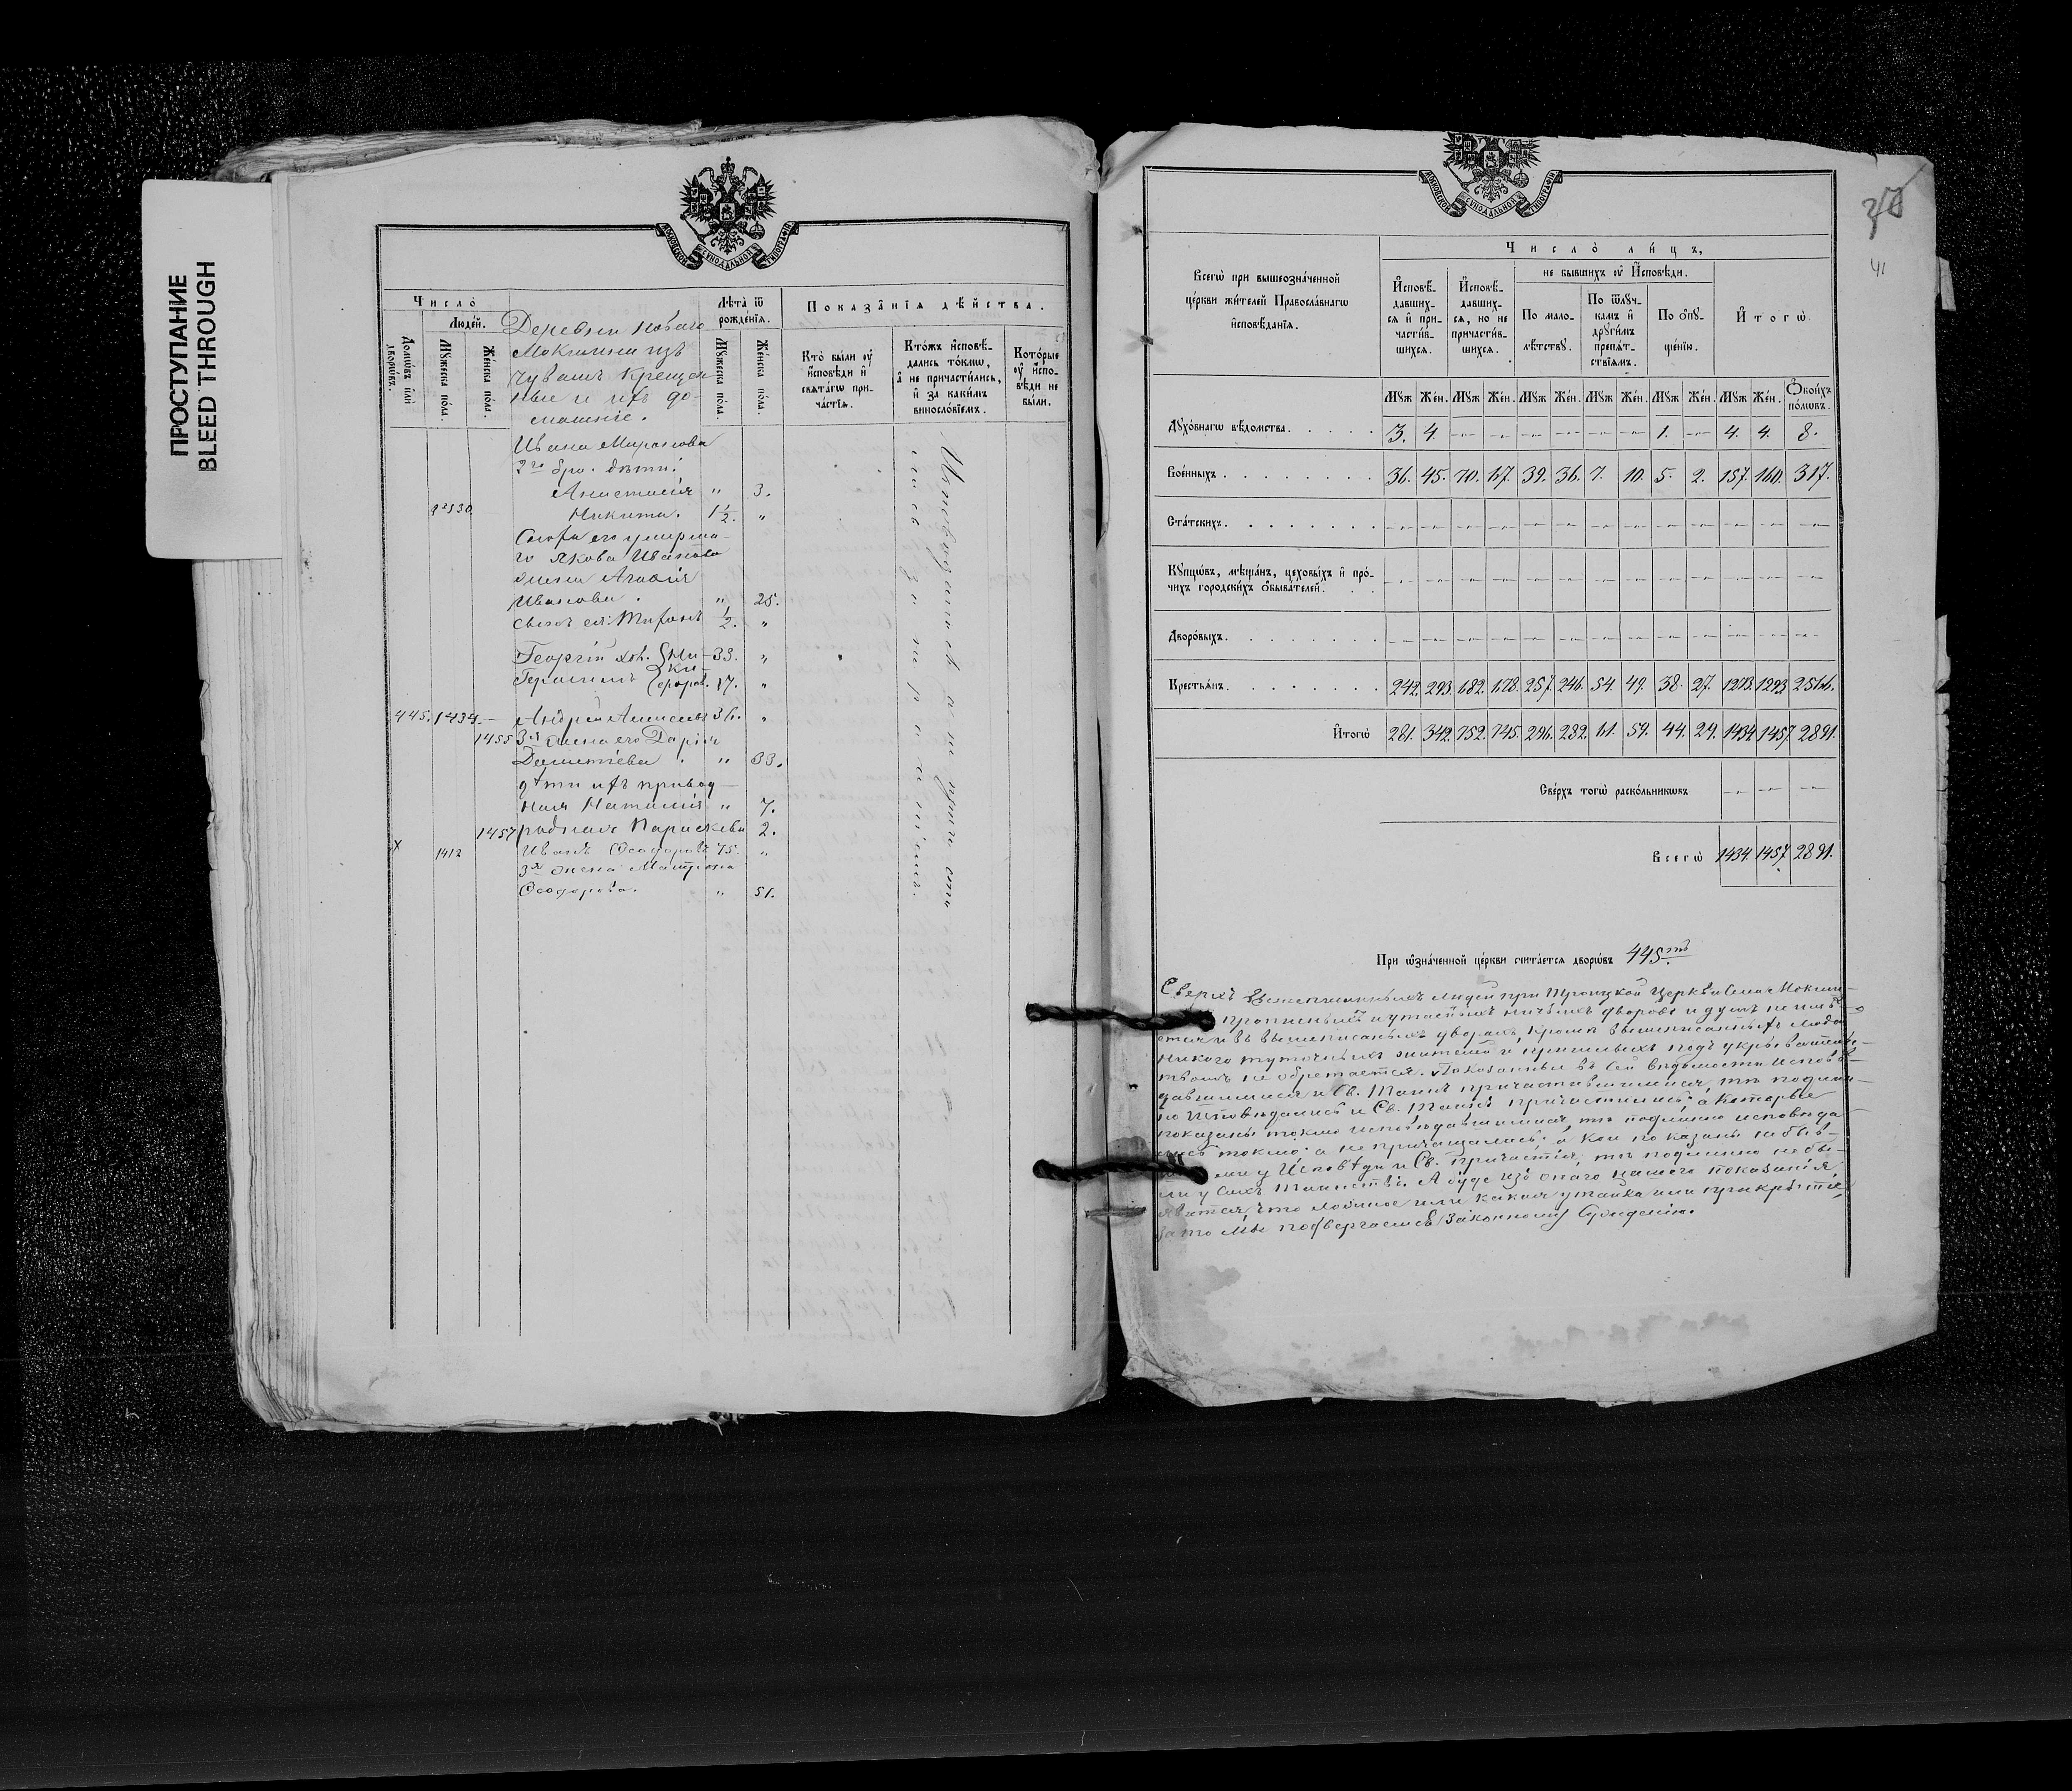 ПРОСТУПАНИЕ
BLEED THROUGH
МОСКОВСКОЙ СѴНОДАЛЬНОЙ ТИПОГРАФІИ
Число̀
Людей.
Домѡвъ или дворѡвъ.
Мꙋжеска пола.
Женска пола.
Деревни Новаго
Мокшина изъ
Чувашъ Крещен
ные и ихъ до-
машніе.
Лѣта ѿ рожденїѧ.
Мꙋжеска пола.
Женска пола.
Показанїѧ дѣйства.
Кто были оу исповѣди и свѧтагѡ при-
частїѧ.
Ктожъ исповѣ-
дались токмѡ, а не причастились, и за какимъ винословїемъ.
Которые оу испо-
вѣди не были.
Ивана Миронова
2го бра. дѣти:
Анастасія " 3.
Никита. 1½. "
Снохи его умерша-
го Якова Иванова
жена Агафія
Иванова. " 25.
сынъ ея Тифонъ ½. "
Георгій 33. "
Герасимъ 17. "
445. 1434. Андрей Алексѣевъ 36. "
1455 3я жена его Дарія
Дементіева. " 33.
дѣти ихъ привод-
ная Наталія " 7.
1457 родная Параскева 2.
х 1412 Иванъ Ѳеодоровъ 75. "
3я жена Матрона
Ѳеодорова. " 51.
41
МОСКОВСКОЙ СѴНОДАЛЬНОЙ ТИПОГРАФІИ
Всегѡ при вышеозначенной
церкви жителей Православнагѡ
исповѣданїѧ.
Число̀ лицъ,
Исповѣ-
давших-
сѧ и при-
частив-
шихсѧ.
Исповѣ-
давших-
сѧ, но не
причастив-
шихсѧ.
не бывшихъ оу Исповѣди.
По мало-
лѣтствꙋ.
По ѿлꙋч-
камъ и
дрꙋгимъ
препѧт-
ствїѧмъ.
По опꙋ-
щенїю.
Итогѡ
Мꙋж Жен. Мꙋж Жен. Мꙋж Жен. Мꙋж Жен. Мꙋж Жен. Мꙋж Жен. Обоихъ полѡвъ.
Дꙋховнагѡ вѣдомства. 3. 4. — — — — — — 1. — 4. 4. 8.
Военныхъ. 36. 45. 70. 67. 39. 36. 7. 10. 5. 2. 157. 160. 317.
Статскихъ. — — — — — — — — — — — — —
Кꙋпцѡвъ, мѣщанъ, цеховыхъ и про-
чихъ городскихъ обывателей. — — — — — — — — — — — — —
Дворовыхъ. — — — — — — — — — — — — —
Крестьѧнъ. 242. 293. 682. 678. 257. 246. 54. 49. 38. 27. 1273. 1293 2566.
Итогѡ 281. 342. 752. 745. 296. 282. 61. 59. 44. 29. 1434 1457 2891.
Сверхъ тогѡ раскольникѡвъ — — —
Всегѡ 1434. 1457. 2891.
При ѡзначенной церкви считаетсѧ дворѡвъ 445ть
Сверхъ вышеписанныхъ людей при Троицкой Церкви Села Мокши-
прописныхъ и утаенныхъ ничьихъ дворовъ и душъ не имѣ-
ется и въ вышеписанныхъ дворахъ, кромѣ вышеписанныхъ людей
никого туточныхъ жителей и пришлыхъ подъ укрывательс-
твомъ не обретается. Показанные въ сей вѣдомости исповѣ-
давшимися и Св. Таинъ причастившимися, тѣ подлин-
но исповѣдались и Св. Таинъ причастились; а которые
показаны токмо исповѣдавшимися, тѣ подлинно исповѣда-
лись токмо; а не причащались; а кои показаны небыв-
шими у Исповѣди и Св. Причастія, тѣ подлинно небы-
ли у сихъ Таинствъ. А буде изъ онаго нашего показанія
явится, что ложное или какая утайка или прикрытіе,
за то мы подвергаемся законному Сужденію.